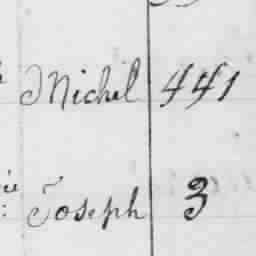 Michel 441
Joseph 3